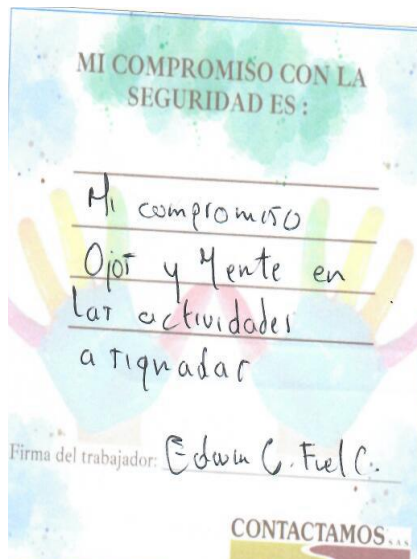 MI COMPROMISO CON LA
SEGURIDAD ES :
Mi compromiso
Ojos y Mente en
las actividades
asignadas
Firma del trabajador: Edwin C. Fuel C.
CONTACTAMOS S.A.S.